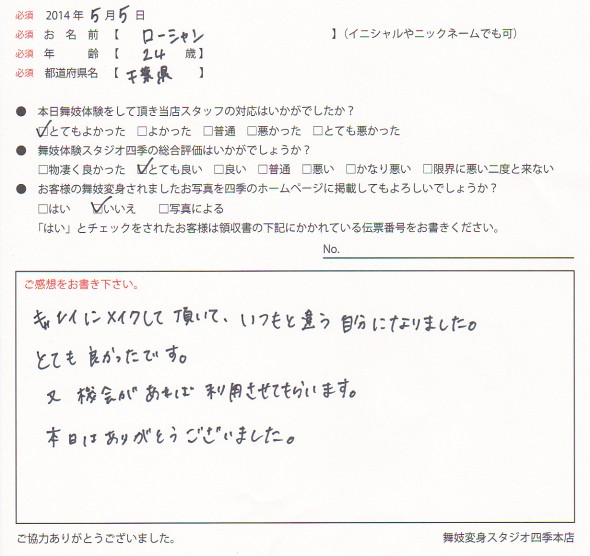 必須 2014年5月5日
必須 お名前【 ローシャン 】(イニシャルやニックネームでも可)
必須 年齢【 24 歳】
必須 都道府県名【 千葉県 】
● 本日舞妓体験をして頂き当店スタッフの対応はいかがでしたか?
☑とてもよかった □よかった □普通 □悪かった □とても悪かった
● 舞妓体験スタジオ四季の総合評価はいかがでしょうか?
□物凄く良かった ☑とても良い □良い □普通 □悪い □かなり悪い □限界に悪い二度と来ない
● お客様の舞妓変身されましたお写真を四季のホームページに掲載してもよろしいでしょうか?
□はい ☑いいえ □写真による
「はい」とチェックをされたお客様は領収書の下記にかかれている伝票番号をお書きください。
No.
ご感想をお書き下さい。
キレイにメイクして頂いて、いつもと違う自分になりました。
とても良かったです。
又機会があれば利用させてもらいます。
本日はありがとうございました。
ご協力ありがとうございました。 舞妓変身スタジオ四季本店